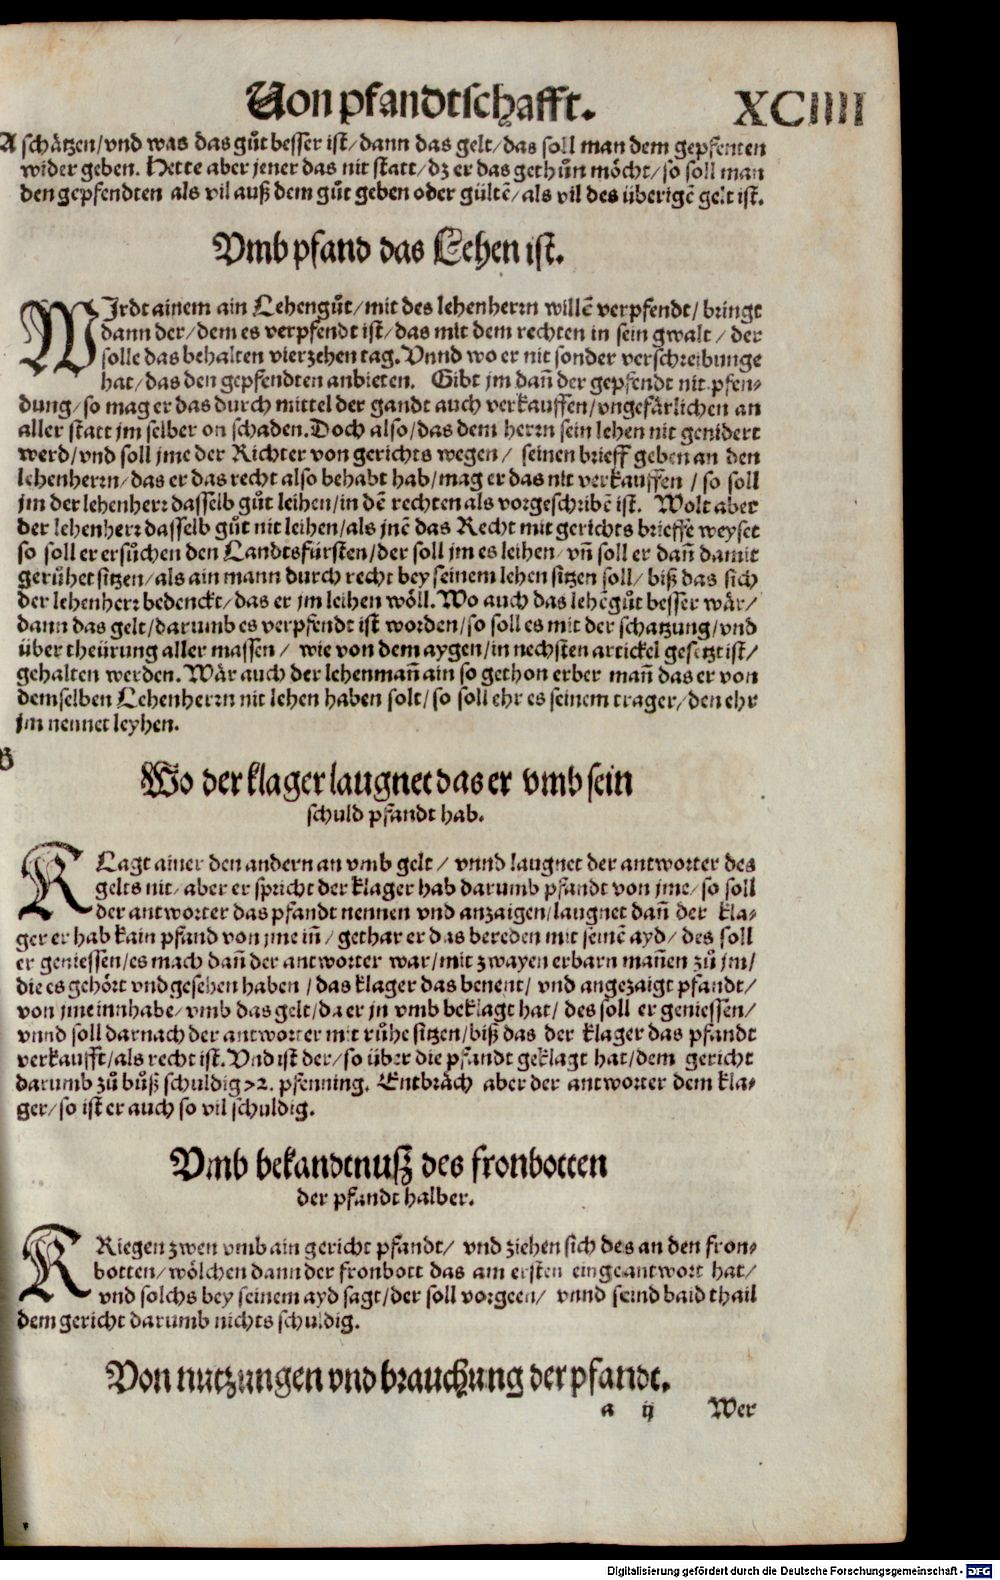 Von pfandtschafft. XCIIII
A schätzen/vnd was das gůt besser ist/dann das gelt/das soll man dem gepfenten
wider geben. Hette aber jener das nit statt/dz er das gethůn möcht/so soll man
den gepfendten als vil auß dem gůt geben oder gültē/als vil des überigē gelt ist.
Vmb pfand das Lehen ist.
WIrdt ainem ain Lehengůt/mit des lehenherrn willē verpfendt/bringt
dann der/dem es verpfendt ist/das mit dem rechten in sein gwalt/der
solle das behalten vierzehen tag. Vnnd wo er nit sonder verschreibunge
hat/das den gepfendten anbieten. Gibt jm dañ der gepfendt nit pfen-
dung/so mag er das durch mittel der gandt auch verkauffen/vngefärlichen an
aller statt jm selber on schaden. Doch also/das dem herrn sein lehen nit genidert
werd/vnd soll jme der Richter von gerichts wegen/ seinen brieff geben an den
lehenherrn/das er das recht also behabt hab/mag er das nit verkauffen/so soll
jm der lehenherr dasselb gůt leihen/in dē rechten als vorgeschribē ist. Wolt aber
der lehenherr dasselb gůt nit leihen/als jnē das Recht mit gerichts brieffe weyset
so soll er ersůchen den Landtsfürsten/der soll jm es leihen/vñ soll er dañ damit
gerühet sitzen/als ain mann durch recht bey seinem lehen sitzen soll/biß das sich
der lehenherr bedenckt/das er jm leihen wöll. Wo auch das lehēgůt besser wär/
dann das gelt/darumb es verpfendt ist worden/so soll es mit der schatzung/vnd
über theürung aller massen/ wie von dem aygen/in nechsten artickel gesetzt ist/
gehalten werden. Wär auch der lehenmañ ain so gethon erber mañ das er von
demselben Lehenherrn nit lehen haben solt/so soll ehr es seinem trager/den ehr
jm nennet leyhen.
B
Wo der klager laugnet das er vmb sein
schuld pfandt hab.
KLagt ainer den andern an vmb gelt/ vnnd laugnet der antworter des
gelts nit/aber er spricht der klager hab darumb pfandt von jme/so soll
der antworter das pfandt nennen vnd anzaigen/laugnet dañ der kla-
ger er hab kain pfand von jme iñ/gethar er das bereden mit seinē ayd/des soll
er geniessen/es mach dañ der antworter war/mit zwayen erbarn mañen zů jm/
die es gehört vnd gesehen haben/das klager das benent/vnd angezaigt pfandt/
von jme innhabe/vmb das gelt/da er jn vmb beklagt hat/des soll er geniessen/
vnnd soll darnach der antworter mit růhe sitzen/biß das der klager das pfandt
verkaufft/als recht ist. Vnd ist der/so über die pfandt geklagt hat/dem gericht
darumb zů bůß schuldig 72. pfenning. Entbräch aber der antworter dem kla-
ger/so ist er auch so vil schuldig.
Vmb bekandtnuß des fronbotten
der pfandt halber.
KRiegen zwen vmb ain gericht pfandt/ vnd ziehen sich des an den fron-
botten/wölchen dann der fronbott das am ersten eingeantwort hat/
vnd solchs bey seinem ayd sagt/der soll vorgeen/ vnnd seind baid thail
dem gericht darumb nichts schuldig.
Von nutzungen vnd brauchung der pfandt.
a ij Wer
Digitalisierung gefördert durch die Deutsche Forschungsgemeinschaft - DFG